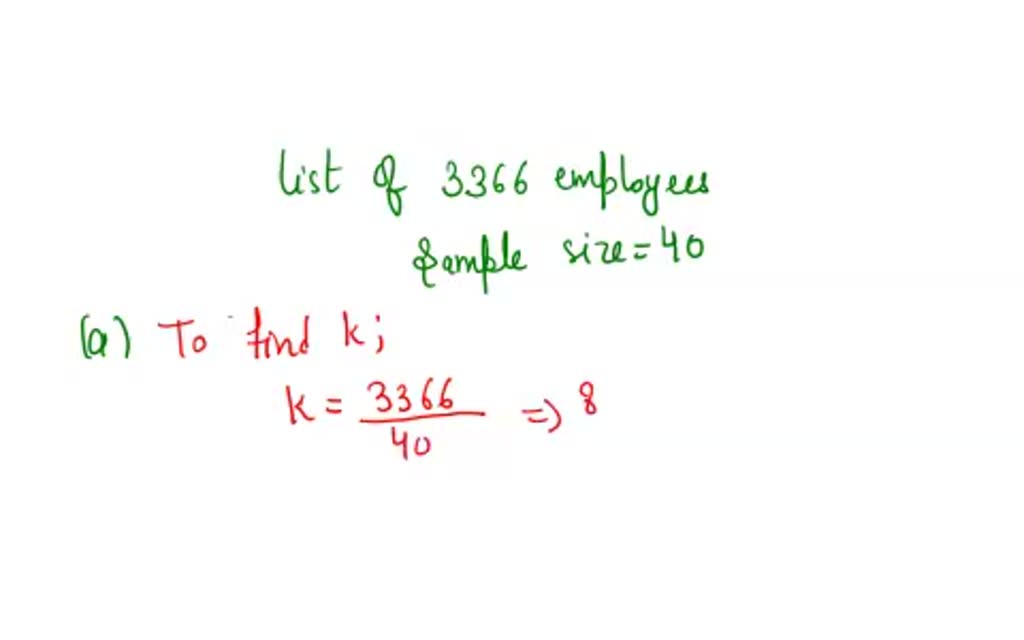 list of 3366 employees
Sample size = 40
(a) To find k;
k = 3366 / 40 => 8